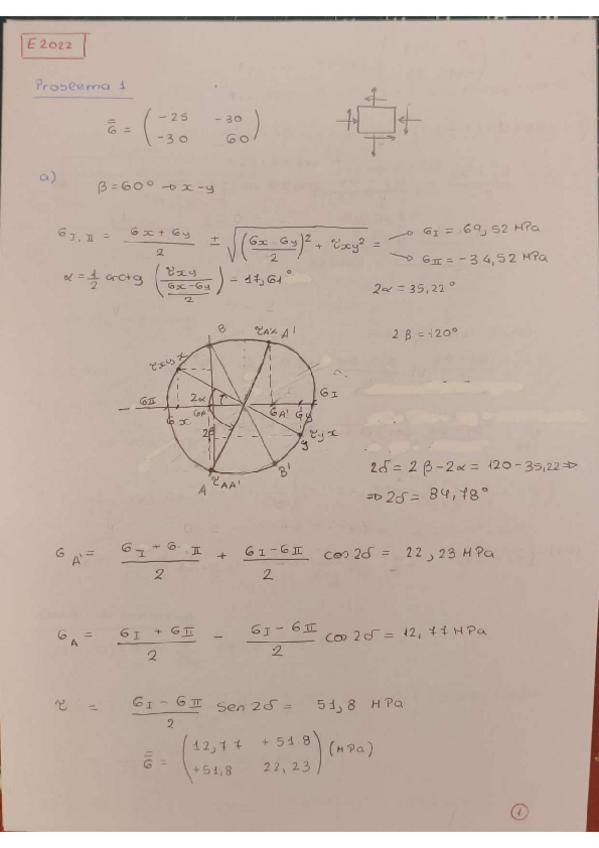 E 2022
Problema 1
σ̿ = ( -25 -30
-30 60 )
a) β = 60° → x-y
σI,II = (σx + σy)/2 ± √(((σx - σy)/2)² + τxy²) = → σI = 69,52 MPa
→ σII = -34,52 MPa
α = 1/2 arctg (τxy/((σx-σy)/2)) = 17,61°
2α = 35,22°
2β = 120°
B τAA' A'
τxy x
σII 2α σI
σx σA σA' σy
2β τyx
y
A τAA' B'
2δ = 2β - 2α = 120 - 35,22 ⇒
⇒ 2δ = 84,78°
σA' = (σI + σII)/2 + (σI - σII)/2 cos 2δ = 22,23 MPa
σA = (σI + σII)/2 - (σI - σII)/2 cos 2δ = 12,77 MPa
τ = (σI - σII)/2 sen 2δ = 51,8 MPa
σ̿ = ( 12,77 +51.8
+51,8 22,23 ) (MPa)
1